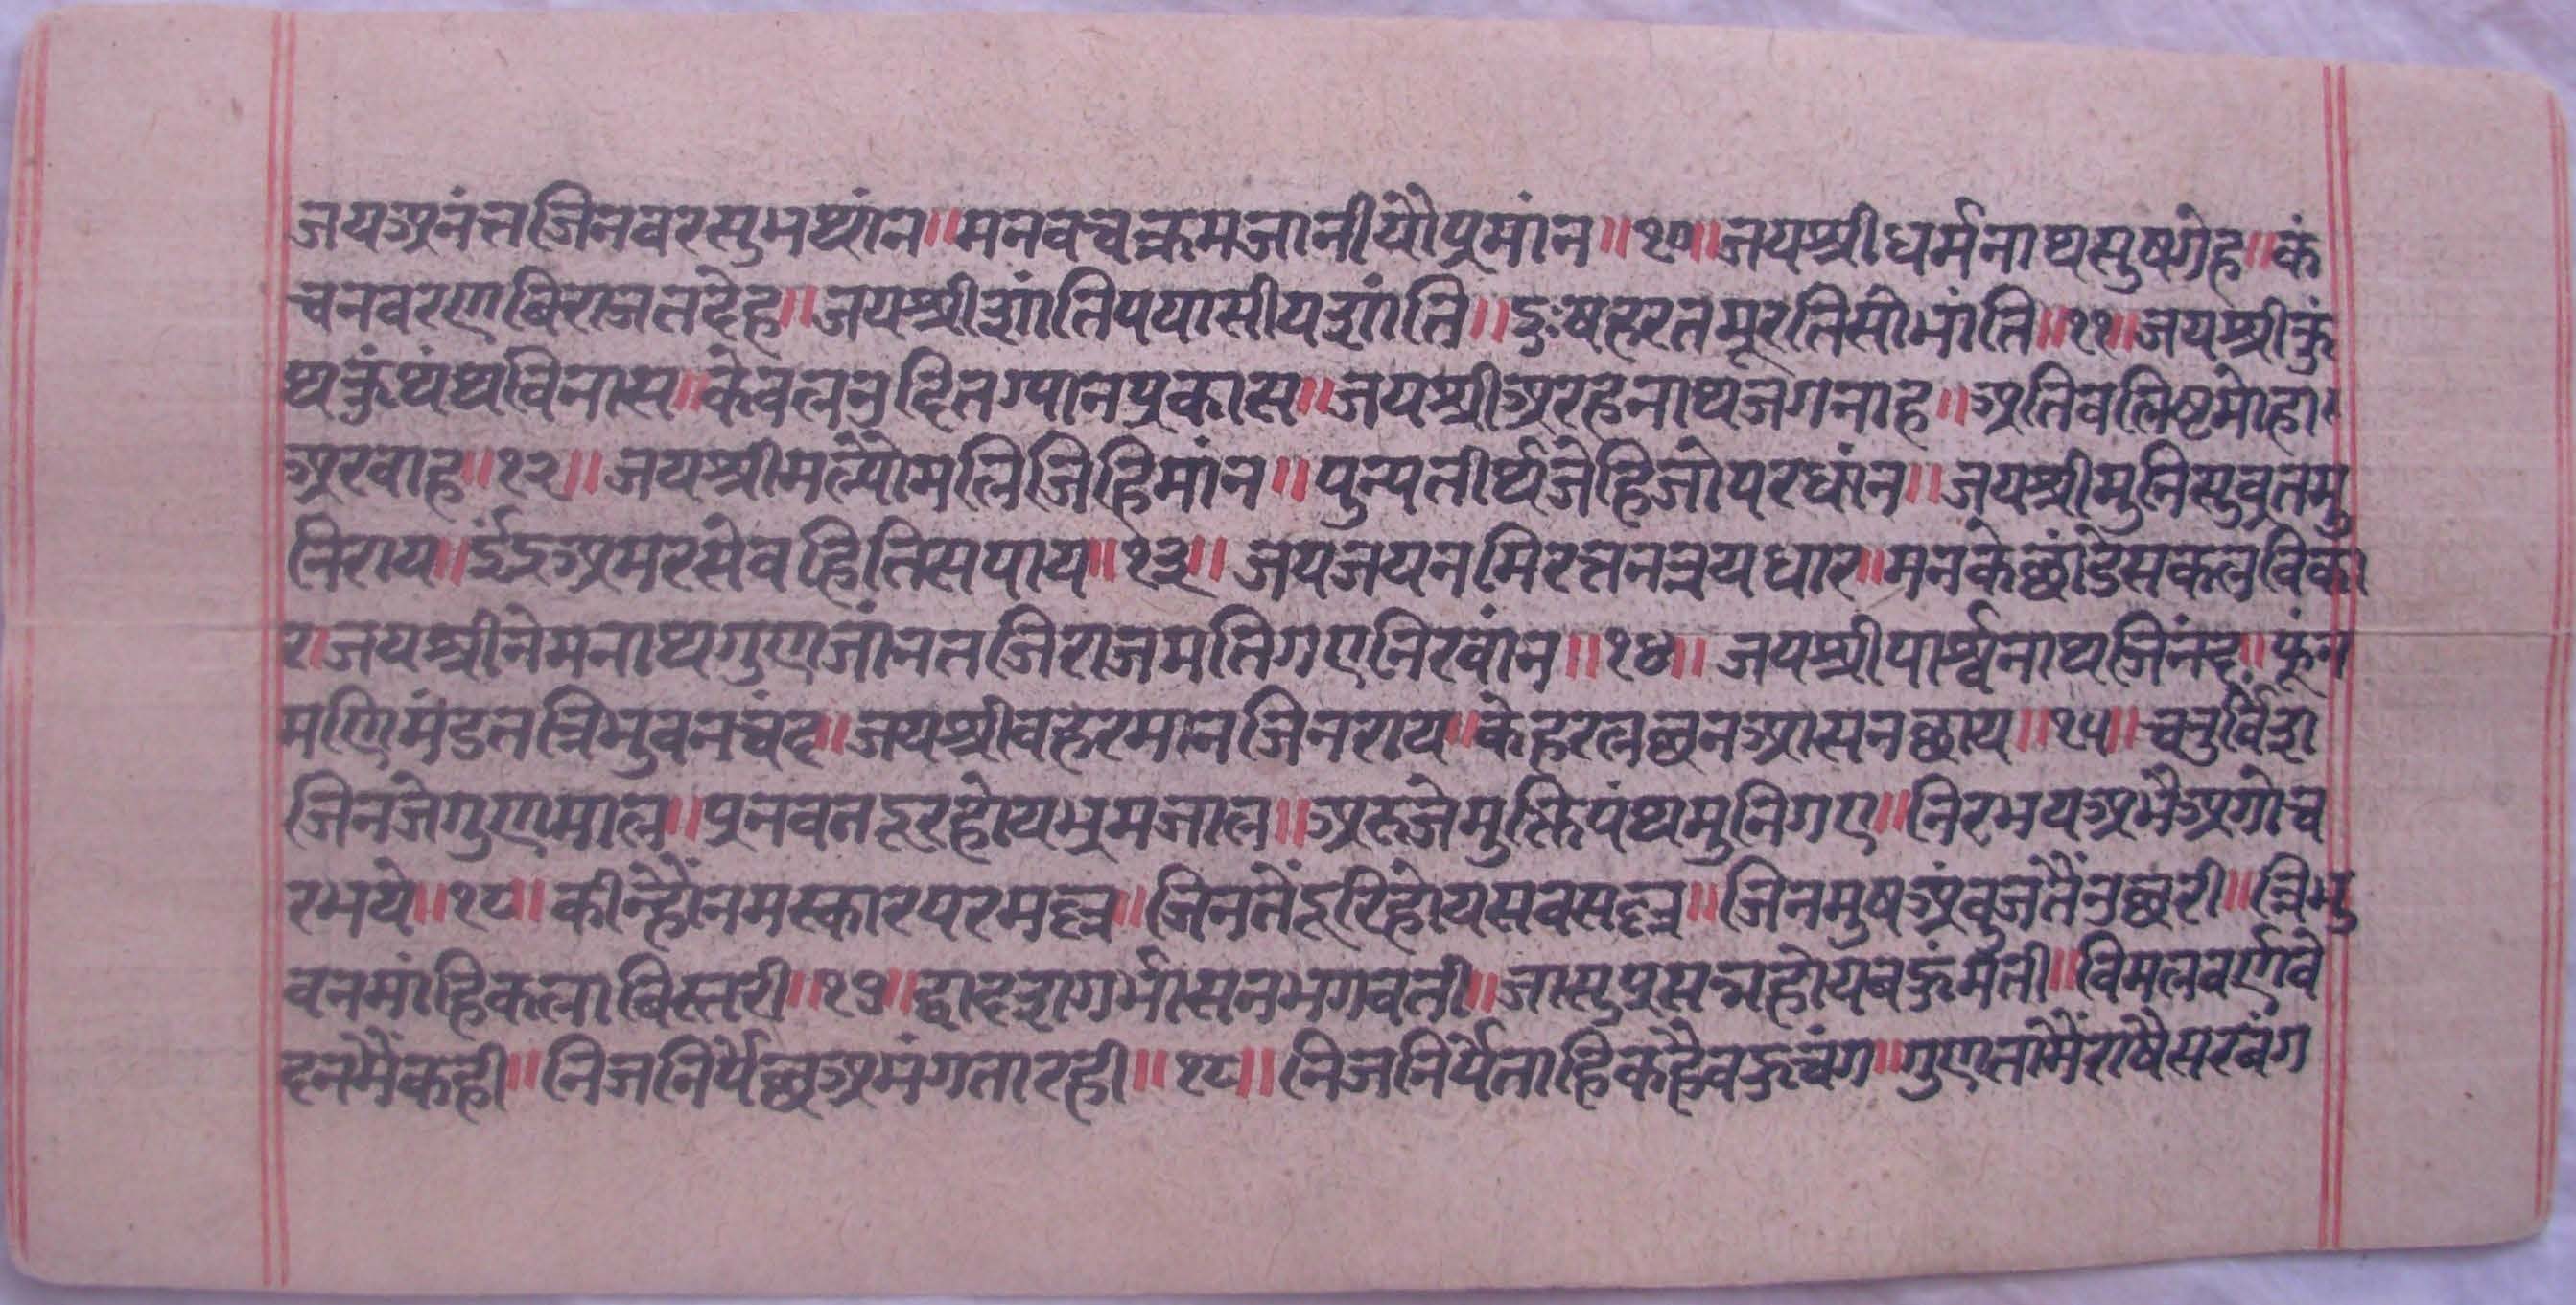 जयअनंतजिनवरसुभथांन॥मनवचक्रमजानीयौप्रमांन॥१०॥जयश्रीधर्मनाथसुषगेह॥कं
चनवरणबिराजतदेह॥जयश्रीशांतिपयासीयशांति॥दुःषहरतमूरतिसीभांति॥११॥जयश्रीकुं
थकुंथंथविनास॥केवलनुदितग्यानप्रकास॥जयश्रीअरहनाथजगनाह॥अतिवलिष्टमोहा
अरवाह॥१२॥जयश्रीमल्यौमलिजिहिमांन॥पुन्यतीर्थजेहिजोपरधांन॥जयश्रीमुनिसुव्रतमु
निराय॥इंद्रअमरसेवहितिसपाय॥१३॥जयजयनमिरत्तनत्रयधार॥मनकेछांडेसकलविका
र।जयश्रीनेमनाथगुणजांनतजिराजमतिगएनिरवांन॥१४॥जयश्रीपार्श्वनाथजिनंद॥फुंन
मणिमंडनत्रिभुवनचंद॥जयश्रीवहरमानजिनराय॥केहरलछनआसनछाय॥१५॥चतुर्विश
जिनजेगुणमाल॥प्रनवतदूरहोयभ्रमजाल॥अरुजेमुक्तिपंथमुनिगए॥निरभयअभैअगोच
रभये॥१६॥कीन्हौंनमस्कारपरमहल॥जिनतेंदूरिहोयसवसहल॥जिनमुषअंवुजतैंनुछरी॥त्रिभु
वनमांहिकलाबिस्तरी॥१७॥द्वादशागर्भासनभगवती॥जासुप्रसन्नहोयबहुंमती॥विमलवर्णवे
दनमैंकही॥निजनिर्यैछअमंगतारही॥१८॥निजनिर्यैताहिकहैवहुचंग॥गुणतामैंराषैसरबंग